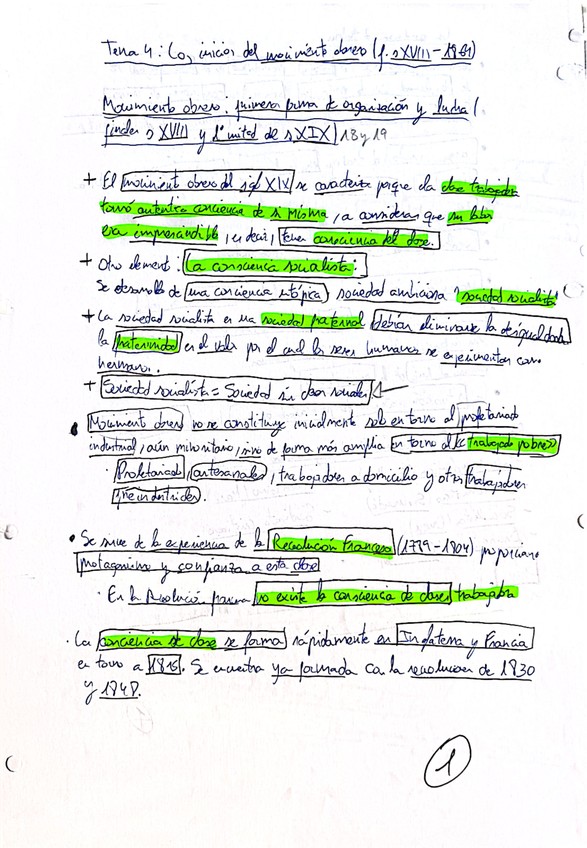 Tema 4: Los inicios del movimiento obrero (f. s XVIII - 1881)
Movimiento obrero: primera forma de organización y lucha (
finales s XVIII y 1ª mitad de s XIX) 18 y 19
+ El movimiento obrero del siglo XIX se caracteriza porque la clase trabajadora
tomó autentica conciencia de si misma, a considerar que su labor
era imprescindible, es decir, tener consciencia de clase.
+ Otro element: La consciencia socialista.
Se desarrolla de una conciencia utópica) sociedad ambiciosa "sociedad socialista"
+ La sociedad socialista es una sociedad fraternal debían eliminarse la desigualdad
la fraternidad es el valor por el cual los seres humanos se experimentan como
hermanos.
+ Sociedad socialista = Sociedad sin clases sociales
Movimiento obrero no se constituye inicialmente solo en torno al proletariado
industrial, aún minoritario, sino de forma más amplia en torno al «trabajador pobre»
· Proletariado, artesanales, trabajadores a domicilio y otros trabajadores
preindustriales.
• Se nutre de la experiencia de la Revolución Francesa (1789-1804) proporciona
protagonismo y confianza a esta clase
· En la Revolución francesa no existe la consciencia de clases trabajadora
· La conciencia de clase se forma rápidamente en Inglaterra y Francia
en torno a 1815. Se encuentra ya formada con la revolucion de 1830
y 1848.
1